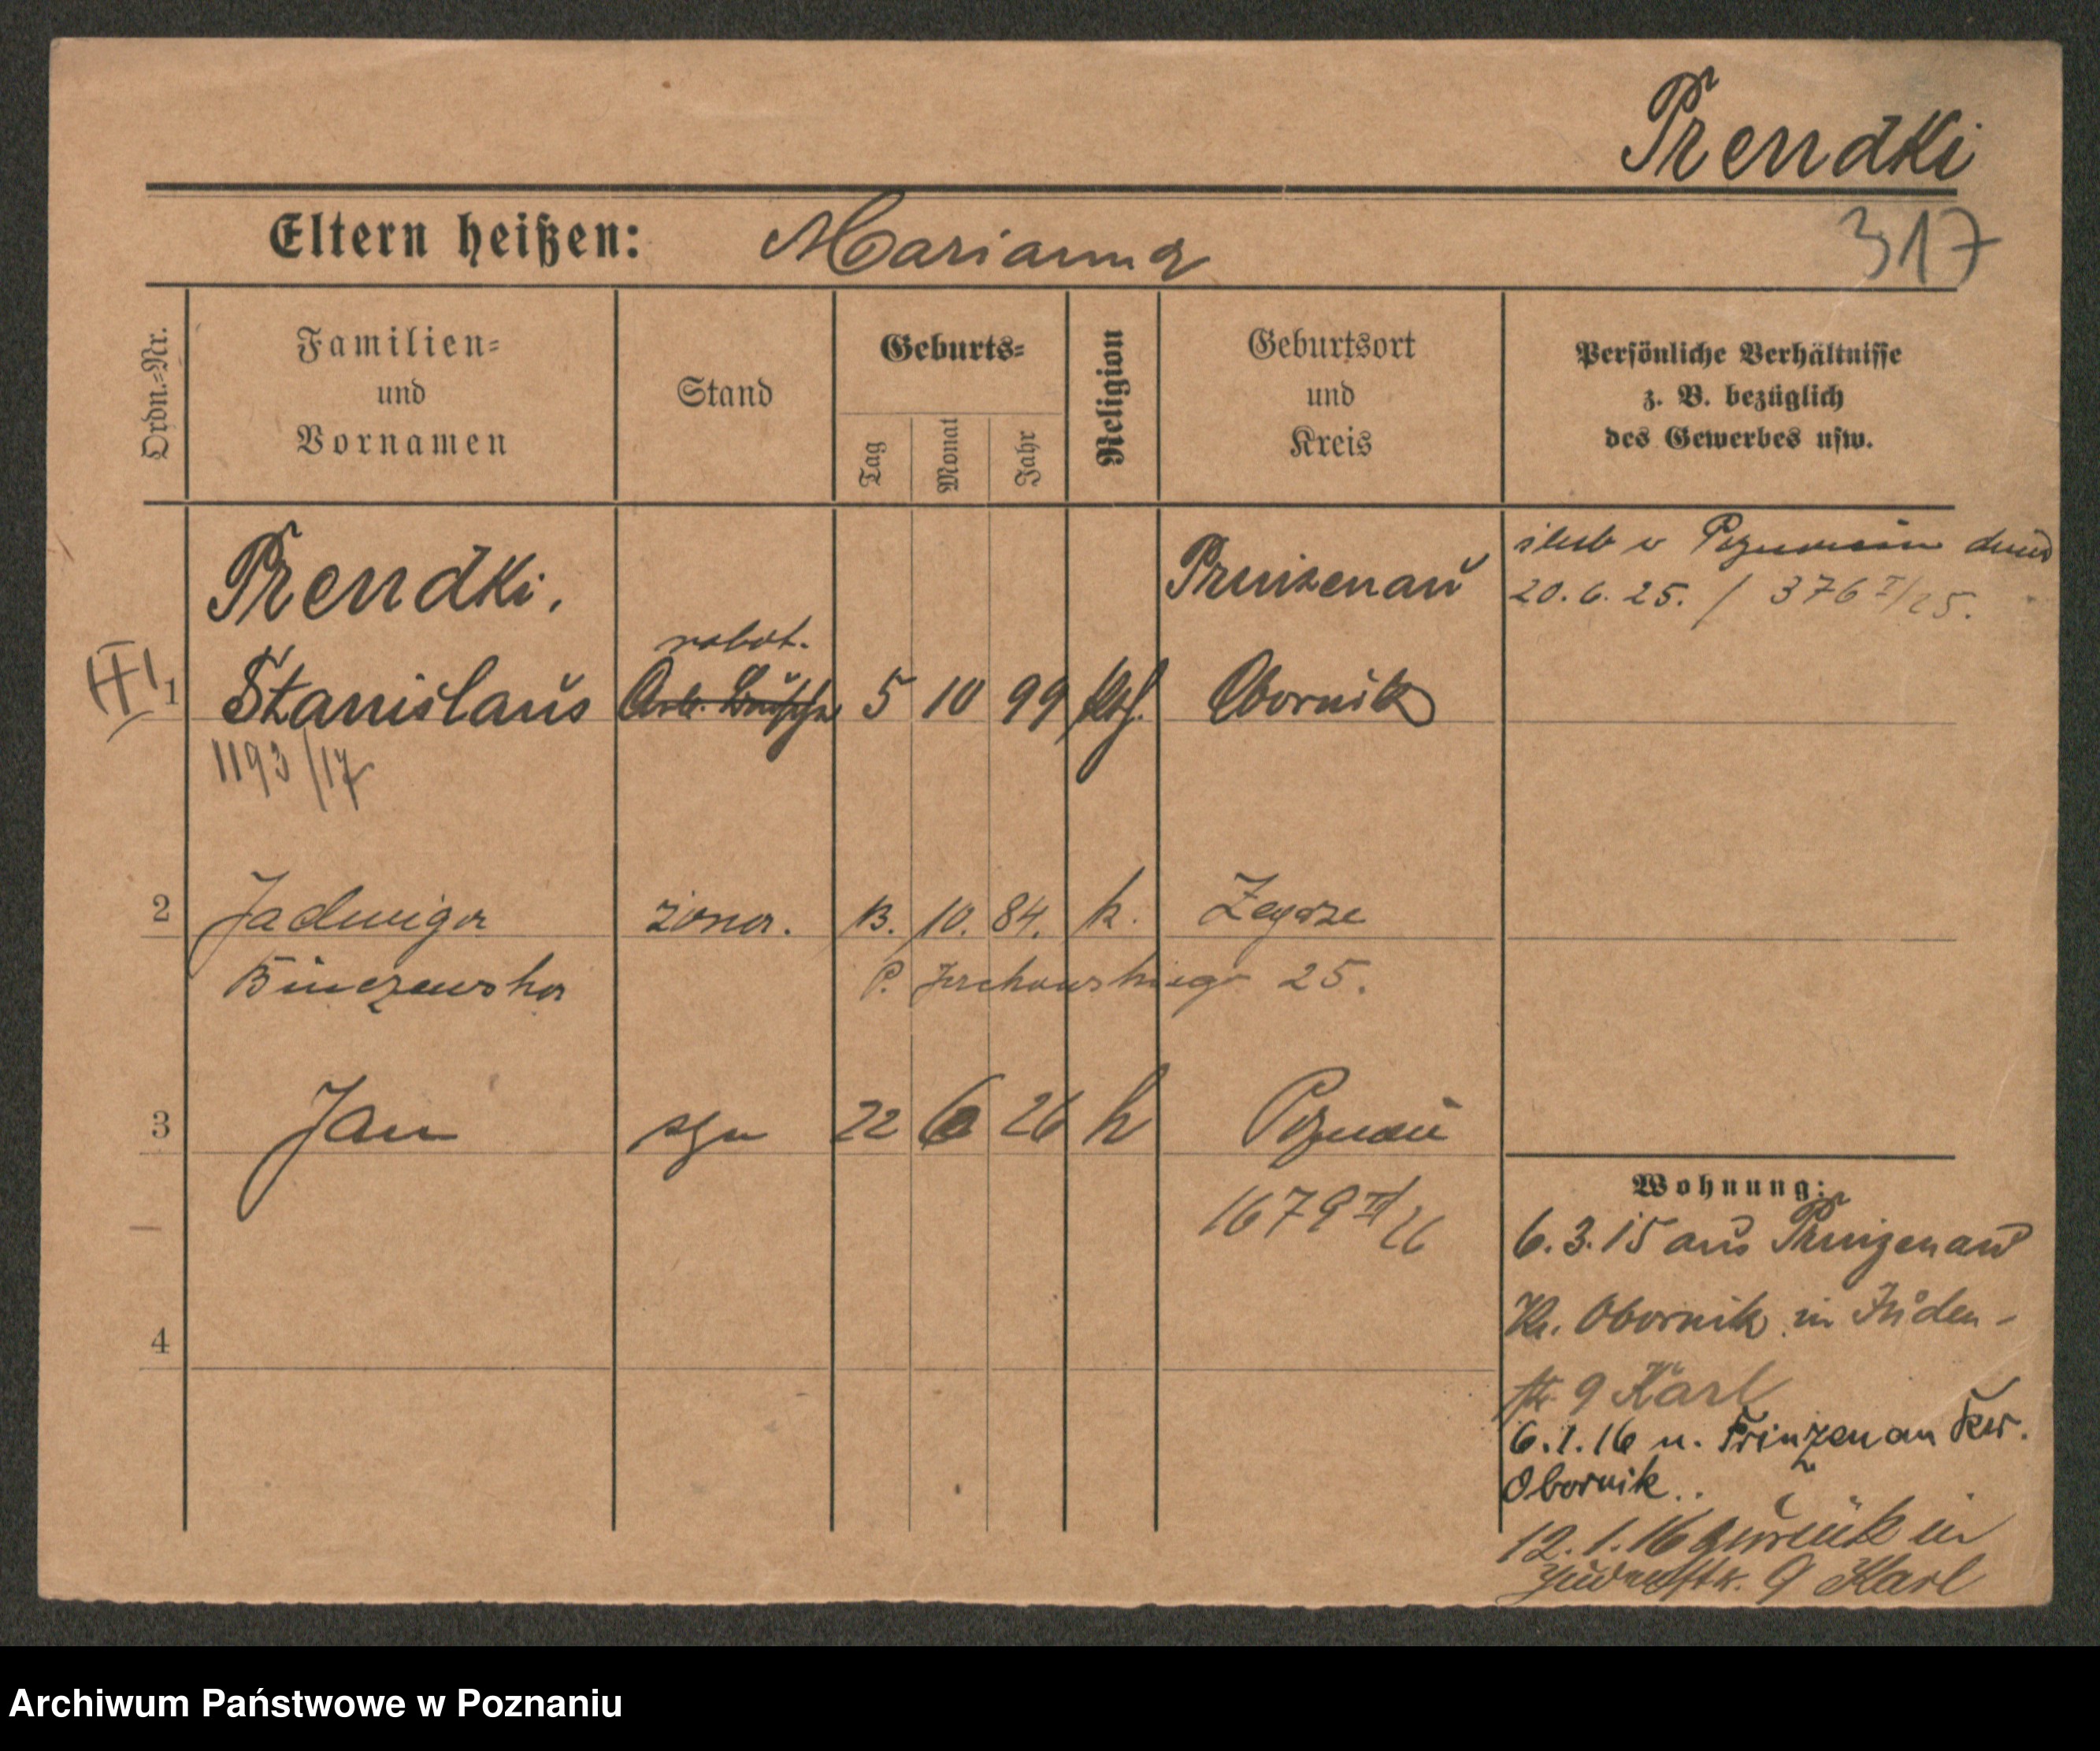 Prendki
Eltern heißen: Marianna
317
Ordn.-Nr.
Familien-
und
Vornamen
Stand
Geburts-
Tag
Monat
Jahr
Religion
Geburtsort
und
Kreis
Persönliche Verhältnisse
z. B. bezüglich
des Gewerbes usw.
Prendki.
Prinzenau
ślub w Poznaniu dnia
20.6.25. / 376 I/25.
robot.
1 Stanislaus Arb. Bursche 5 10 99 kth. Obornik
1193/17
2 Jadwiga żona. 13. 10. 84. k. Zegrze
Binczewska
25.
3 Jan syn 22 6 26 k Poznań
1679 III/26
4
Wohnung:
6.3.15 aus Prinzenau
Kr. Obornik in Juden-
str 9 Karl
6.1.16 n. Prinzenau Kr.
Obornik..
12.1.16 zurück in
Judenstr. 9 Karl
Archiwum Państwowe w Poznaniu